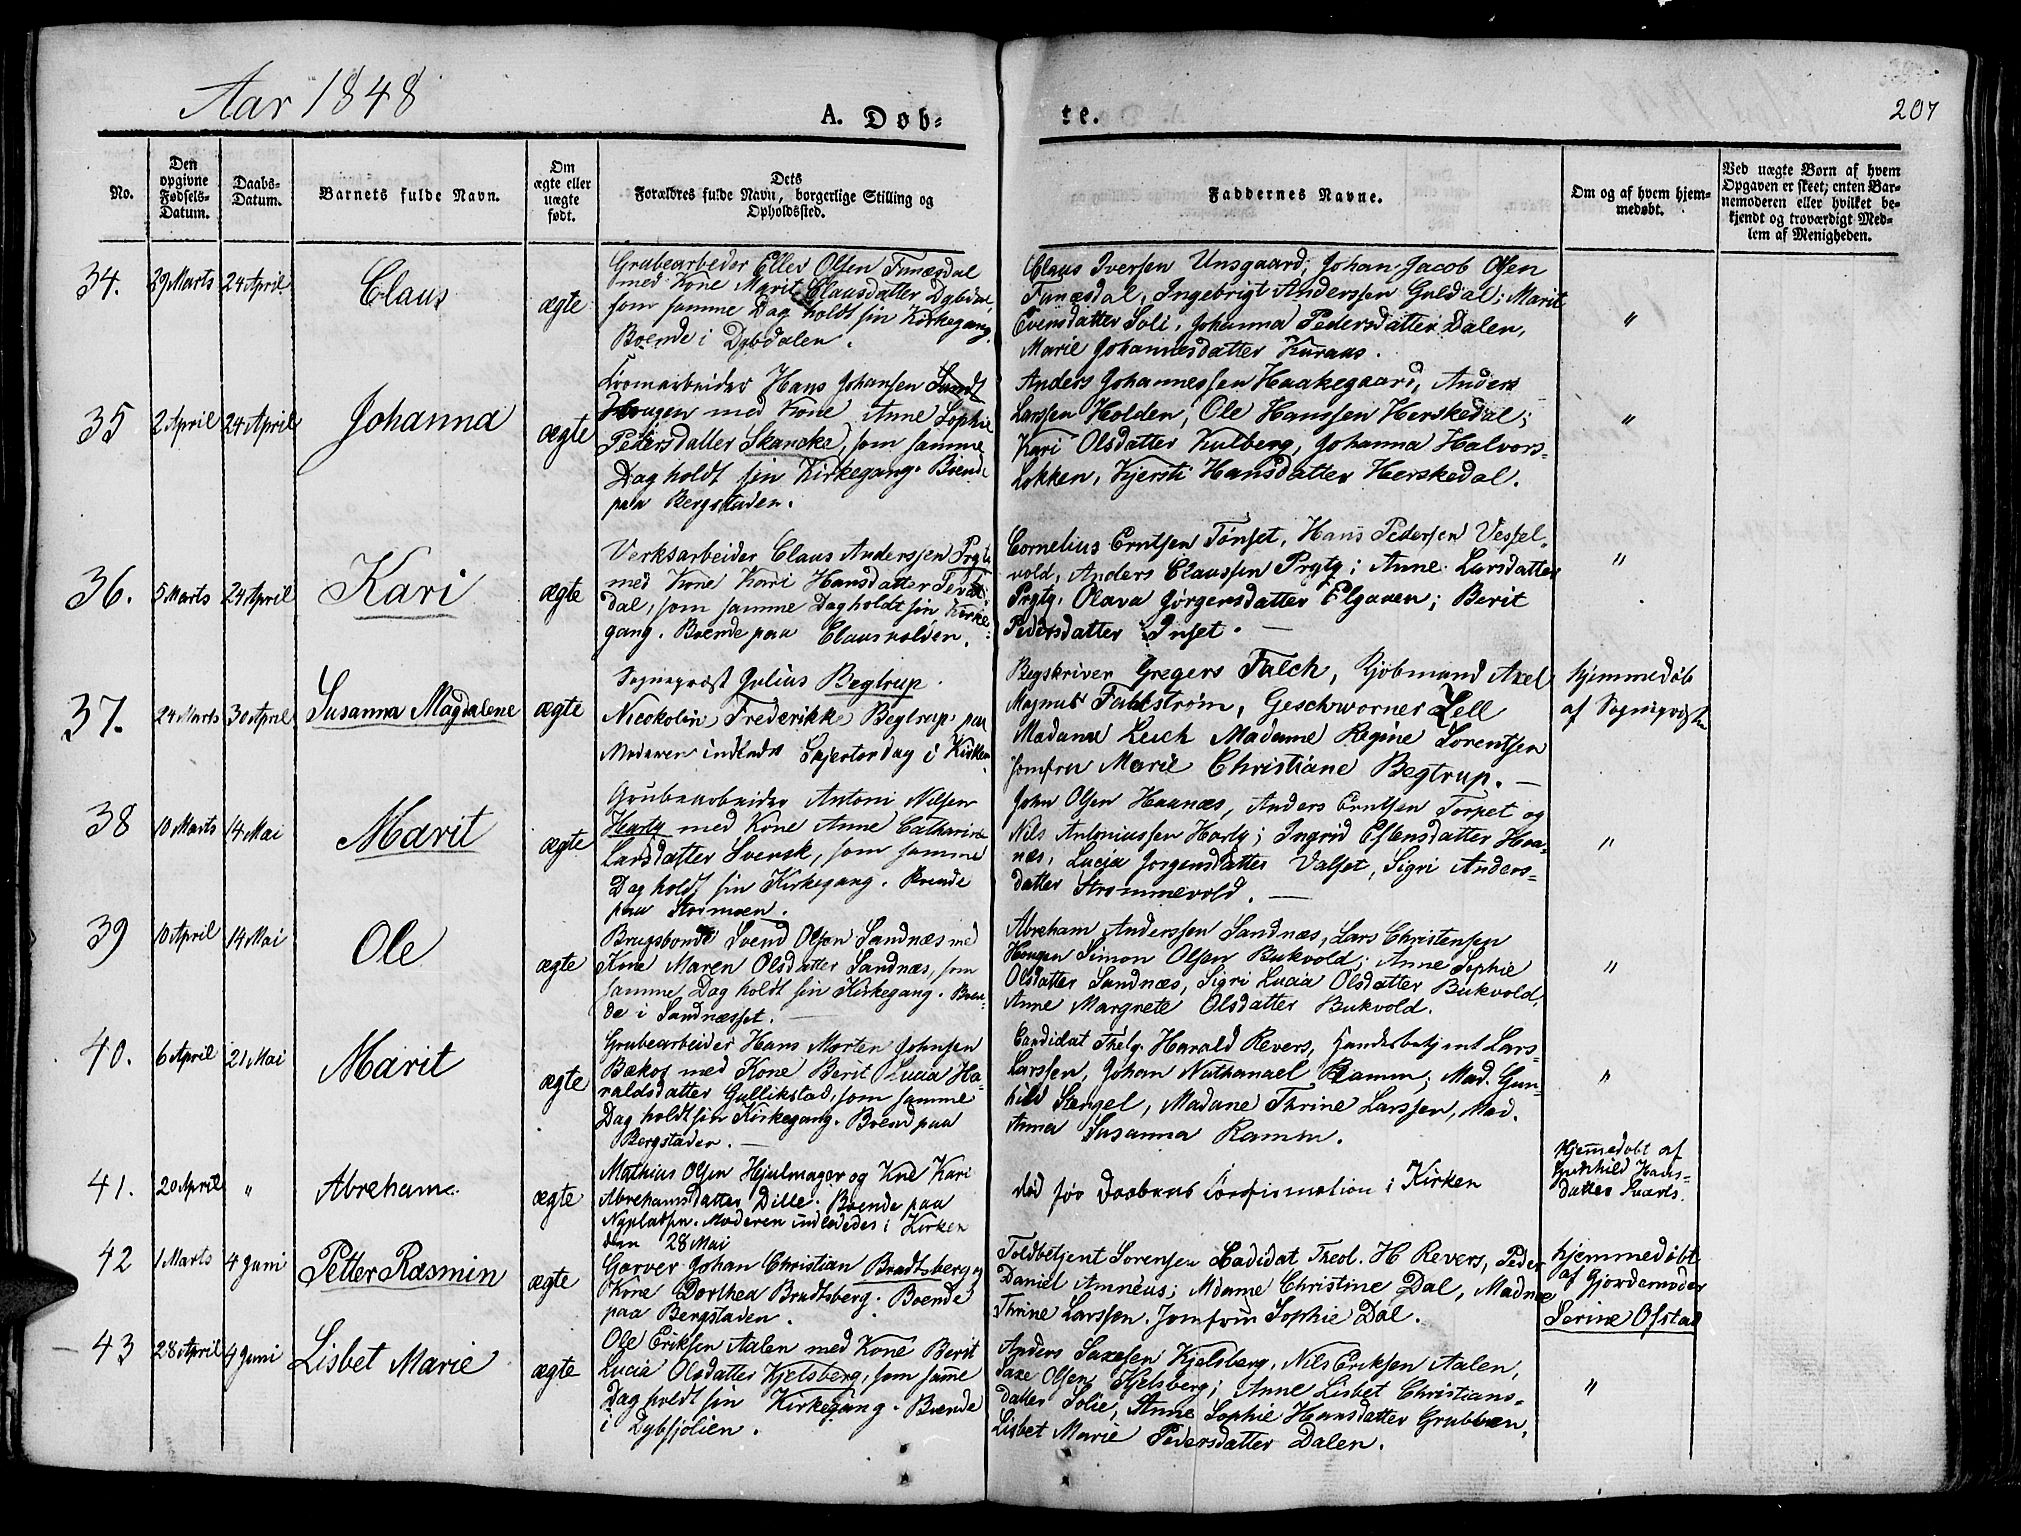 Aar 1848
A. Døb-
te.
207
No.
Den
opgivne
Fødsels-
Datum.
Daabs-
Datum.
Barnets fulde Navn.
Om
ægte eller
uægte
født.
Dets
Forældres fulde Navn, borgerlige Stilling og
Opholdssted.
Faddernes Navne.
Om og af hvem hjem-
medøbt.
Ved uægte Børn af hvem
Opgaven er skeet; enten Bar-
nemoderen eller hvilket be-
kjendt og troværdigt Med-
lem af Menigheden.
34.
29 Marts
24 April
Claus
ægte
Grubearbeder Eller Olsen Funæsdal
med Kone Marit Clausdatter Dybdal
som samme Dag holdt sin Kirkegang.
Boende i Dybdalen.
Claus Iversen Unsgaard, Johan Jacob Olsen
Funæsdal, Ingebrigt Anderssen Guldal; Marit
Evensdatter Soli, Johanna Pedersdatter Dalen,
Marie Johannesdatter Kuraas.
"
35
2 April
24 April
Johanna
ægte
Hans Johansen
Hougen med Kone Anne Sophie
Pedersdatter Skancke, som samme
Dag holdt sin Kirkegang. Boende
paa Bergstaden.
Anders Johannessen Haakegaard, Anders
Larssen Holden, Ole Hanssen Herskedal;
Kari Olsdatter Kulberg, Johanna Halvors-
Løkken, Kjersti Hansdatter Herskedal.
"
36.
5 Marts
24 April
Kari
ægte
Verksarbeider Claus Anderssen Prytz
med Kone Kari Hansdatter
dal, som samme Dag holdt sin Kirke-
gang. Boende paa Clausvolden.
Cornelius Erntsen Tønset, Hans Pedersen Vessel-
vold, Anders Claussen Prytz; Anne Larsdatter
Prytz, Olava Jørgensdatter Elgaaen; Berit
Pedersdatter Inset.
"
37.
24 Marts
30 April
Susanna Magdalene
ægte
Sognepræst Julius Begtrup
Nicokoline Frederikke Begtrup, paa
Moderen indledt Skjertorsdag i Kirken
Begskriver Gregers Falch, Kjøbmand Axel
Magnus Fahlstrøm, Geschworner Lell
Madame Leich Madame Regine Lorentsen
Jomfru Marie Christiane Begtrup.
Hjemmedøb
af Sognepræsten
38
10 Marts
14 Mai
Marit
ægte
Grubearbeider Antoni Nilsen
Harty med Kone Anne Catharina
Larsdatter Svensk, som samme
Dag holdt sin Kirkegang. Boende
paa Stormoen.
John Olsen Haanæs, Anders Erntsen Torpet og
Nils Antoniussen Harty; Ingrid Estensdatter Haa-
næs, Lucia Jørgensdatter Valset, Sigri Anders-
datter Strømmevold.
"
39
10 April
14 Mai
Ole
ægte
Brugsbonde Svend Olsen Sandnæs med
Kone Maren Olsdatter Sandnæs, som
samme Dag holdt sin Kirkegang. Boen-
de i Sandnæsset.
Abraham Anderssen Sandnæs, Lars Christensen
Hougen Simon Olsen Bukvold; Anne Sophie
Olsdatter Sandnæs, Sigri Lucia Olsdatter Bukvold,
Anne Margrete Olsdatter Bukvold.
"
40.
6 April
21 Mai
Marit
ægte
Grubearbeider Hans Morten Johnsen
Bækos med Kone Berit Lucia Ha-
raldsdatter Gullikstad, som samme
Dag holdt sin Kirkegang. Boend paa
Bergstaden.
Candidat Thelg. Harald Revers, Handelsbetjent Lars
Larssen, Johan Nathanael Ramm; Mad. Gun-
hild Stengel, Madame Thrine Larssen, Mad.
Anna Susanna Ramm.
"
41.
20 April
"
Abraham
ægte
Mathias Olsen Hjulmager og Kne Kari
Abrehamsdatter Dille. Boende paa
Nypladsen. Moderen indlededes i Kirken
den 28 Mai
død før Daabens Confirmation i Kirken
Hjemedøbt af
Gunhild Hans-
datter
42
1 Marts
4 Juni
Petter Rasmin
ægte
Garver Johan Christian Bradtsberg og
Kone Dorthea Bradtsberg. Boende
paa Bergstaden.
Toldbetjent Sørensen Cadidat Theol. H Revers, Peder
Daniel Amnéus; Mdame Christine Dal, Madme
Thrine Larssen. Jomfru Sophie Dal.
hjemmedøbt
af Gjordemoder
Serine Ofstad
43
28 April
4 Juni
Lisbet Marie
ægte
Ole Eriksen Aalen med Kone Berit
Lucia Olsdatter Kjelsberg, som same
Dag holdt sin Kirkegang. Boende
i Dybsjølien.
Anders Saxesen Kjelsberg, Nils Eriksen Aalen,
Saxe Olsen Kjelsberg; Anne Lisbet Christians-
datter Solie, Anne Sophie Hansdatter Grubben,
Lisbet Marie Pedersdatter Dalen.
"